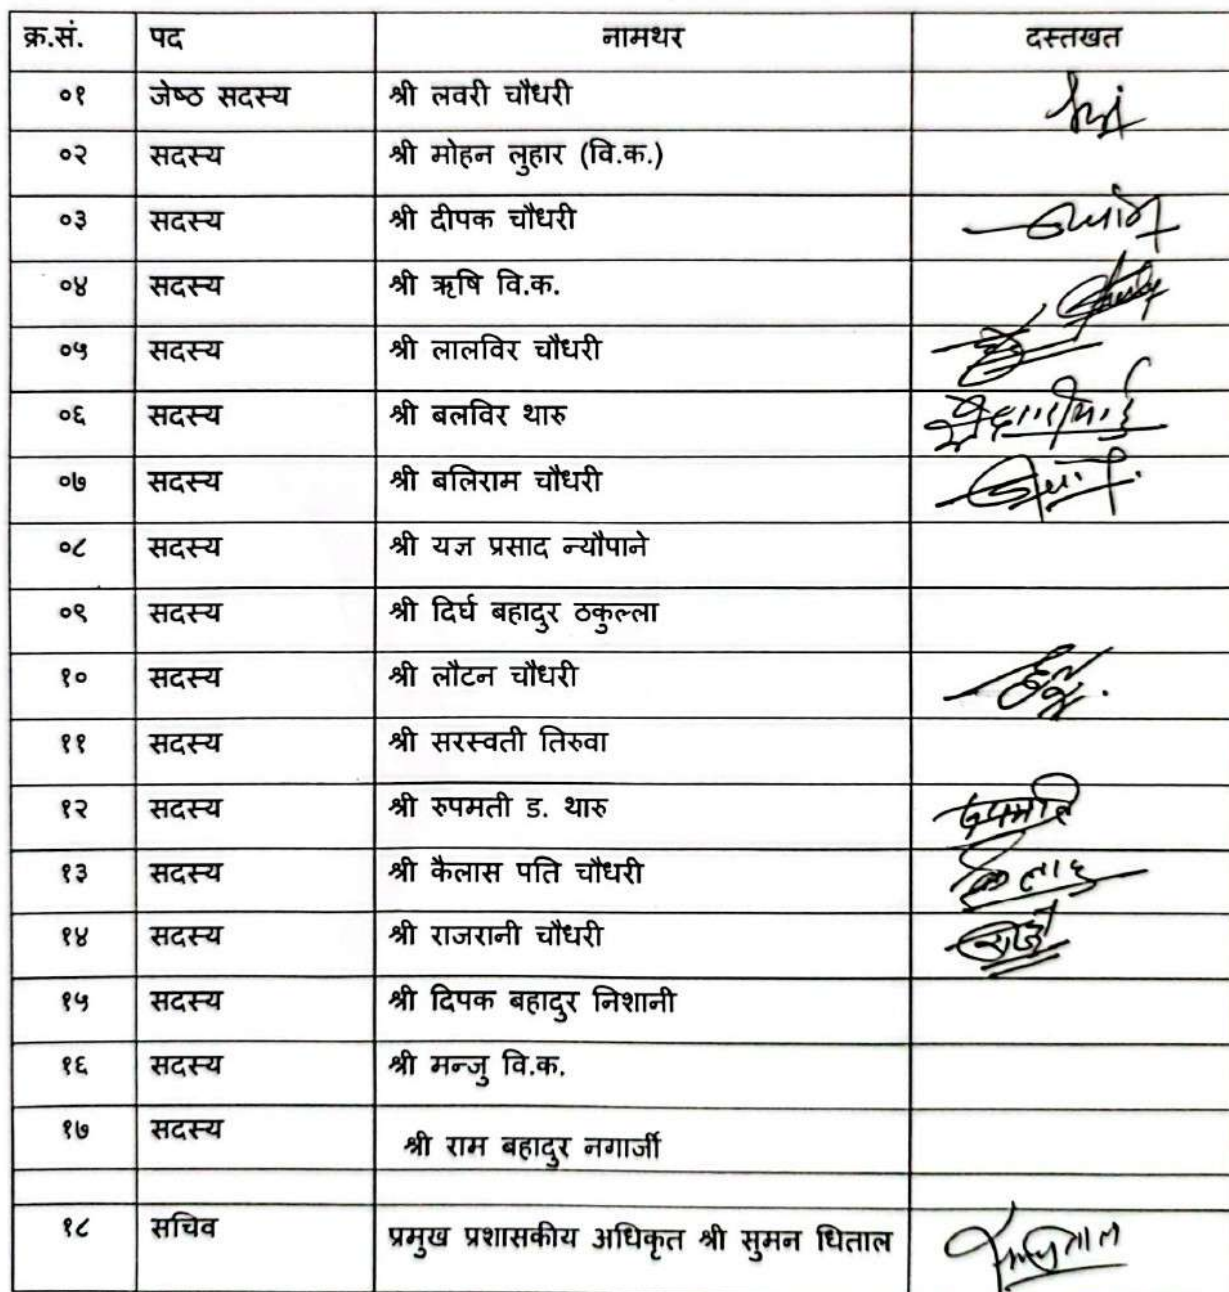 क्र.सं. पद नामथर दस्तखत
०१ जेष्ठ सदस्य श्री लवरी चौधरी
०२ सदस्य श्री मोहन लुहार (वि.क.)
०३ सदस्य श्री दीपक चौधरी
०४ सदस्य श्री ऋषि वि.क.
०५ सदस्य श्री लालविर चौधरी
०६ सदस्य श्री बलविर थारु
०७ सदस्य श्री बलिराम चौधरी
०८ सदस्य श्री यज्ञ प्रसाद न्यौपाने
०९ सदस्य श्री दिर्घ बहादुर ठकुल्ला
१० सदस्य श्री लौटन चौधरी
११ सदस्य श्री सरस्वती तिरुवा
१२ सदस्य श्री रुपमती ड. थारु
१३ सदस्य श्री कैलास पति चौधरी
१४ सदस्य श्री राजरानी चौधरी
१५ सदस्य श्री दिपक बहादुर निशानी
१६ सदस्य श्री मन्जु वि.क.
१७ सदस्य श्री राम बहादुर नगार्जी
१८ सचिव प्रमुख प्रशासकीय अधिकृत श्री सुमन धिताल